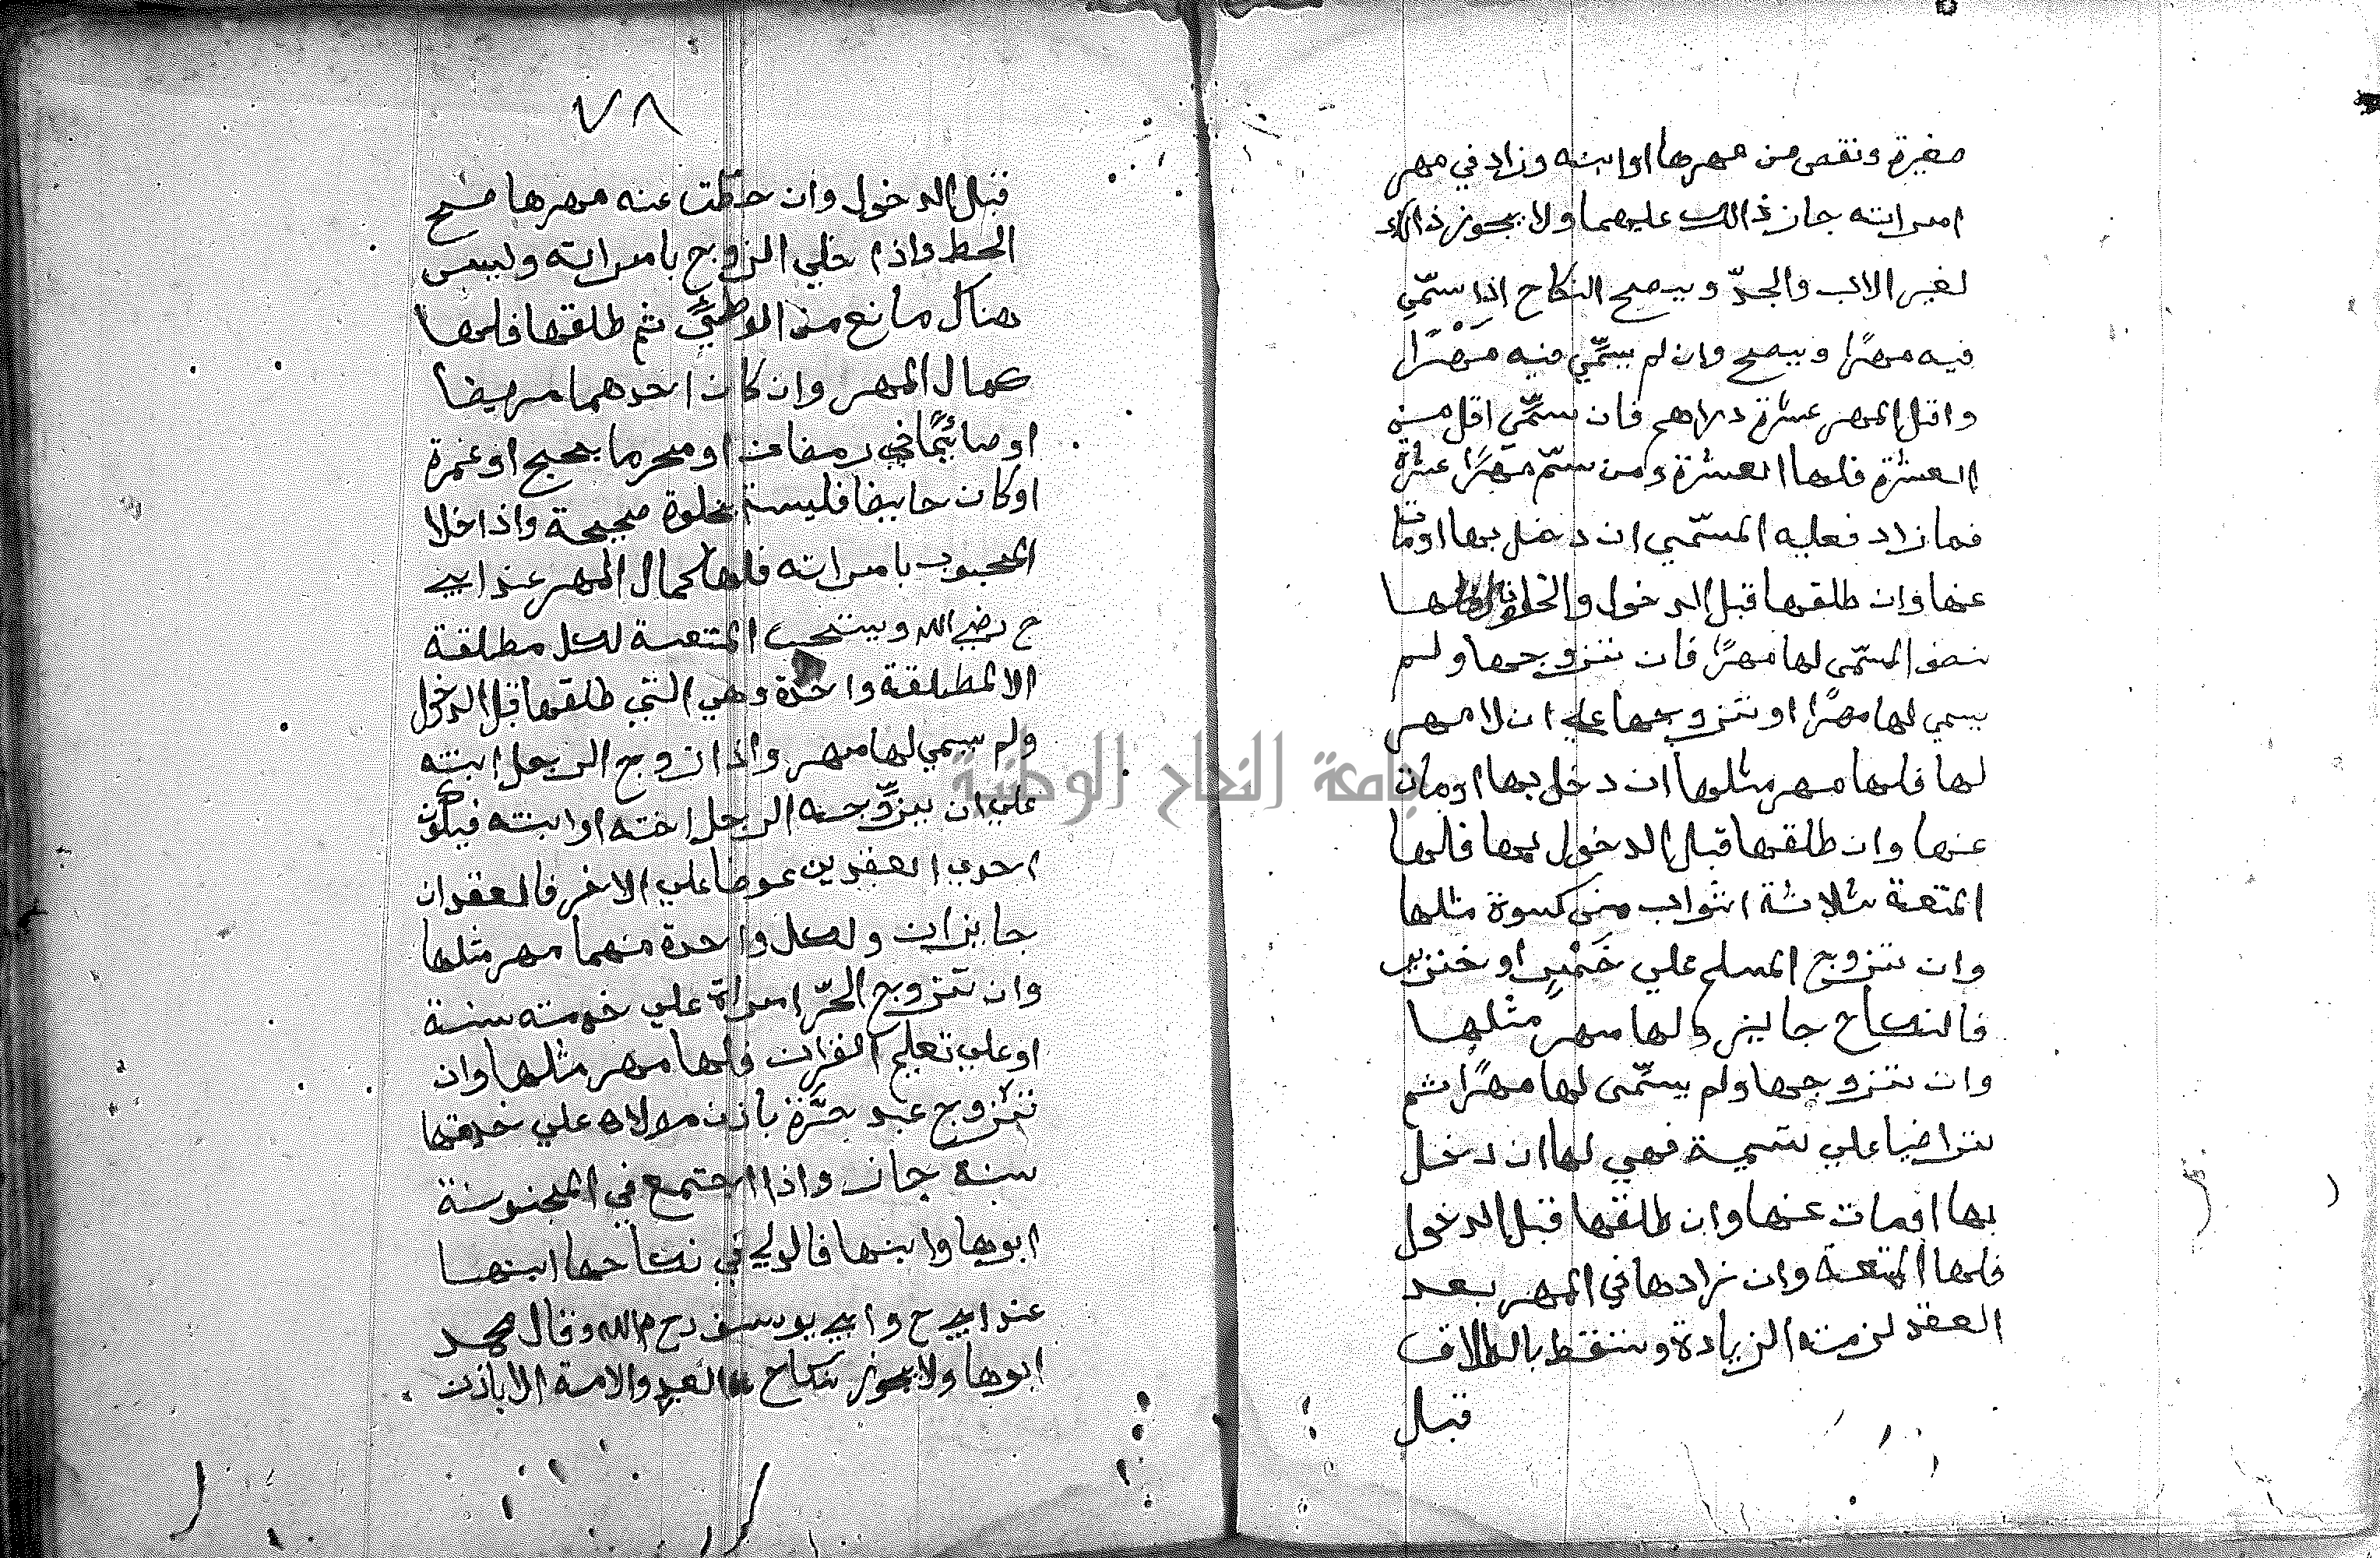 صغيرة ونقص من مهرها او ابنه وزاد في مهر
امراته جاز ذالك عليهما ولا يجوز ذالك
لغير الاب والجدّ ويصح النكاح اذا سمّي
فيه مهرًا ويصح وان لم يسمّي فيه مَهْرًا
واقل المهر عشرة دراهم فان سمّي اقل من
العشرة فلها العشرة ومن سمّ مهرًا عشرة
فما زاد فعليه المسمّي ان دخل بها او مات
عنها وان طلقها قبل الدخول والخلوة فلها
نصف المسمّى لها مهرًا فان تزوجها ولم
يسمي لها مهرًا او تزوجها علي ان لا مهر
لها فلها مهر مثلها ان دخل بها او مات
عنها وان طلقها قبل الدخول بها فلها
المتعة ثلاثة اثواب من كسوة مثلها
وان تزوج المسلم علي خَمْرٍ او خنزير
فالنكاح جايز ولها مهر مثلها
وان تزوجها ولم يسمّى لها مهرًا ثم
تراضيا علي تسمية فهي لها ان دخل
بها او مات عنها وان طلقها قبل الدخول
فلها المتعة وان زادها في المهر بعد
العقد لزمته الزيادة وستقط بالطلاق
قبل
٧٨
قبل الدخول وان حطّت عنه مهرها صح
الحط واذا خلي الزوج بامراته وليس
هناك مانع من الوطئ ثم طلقها فلها
كمال المهر وان كان احدهما مريضا
او صائمًا في رمضان او محرما بحج او عمرة
او كان حايضا فليسة بخلوة صحيحة واذا خلا
المجبوب بامراته فلها كمال المهر عند ابي
ح رضي الله ويستحب المتعة لكل مطلقة
الا لمطلقة واحدة وهي التي طلقها قبل الدخول
ولم يسمي لها مهر واذا زوج الرجل ابنته
علي ان يزوّجه الرجل اخته او ابنته فيكون
احدي العقدين عوضا علي الاخر فالعقدان
جايزان ولكل واحدة منهما مهر مثلها
وان تزوج الحرّ امراة علي خدمته سنة
او علي تعليم القران فلها مهر مثلها وان
تزوج عبد حرَّة باذن مولاه علي خدمتها
سنة جاز واذا اجتمع في المجنونة
ابوها وابنها فالولي في نكاحها ابنها
عند ابي ح وابي يوسف رح م الله وقال محمد
ابوها ولا يجوز نكاح العبد والامة الا باذن
جامعة النجاح الوطنية